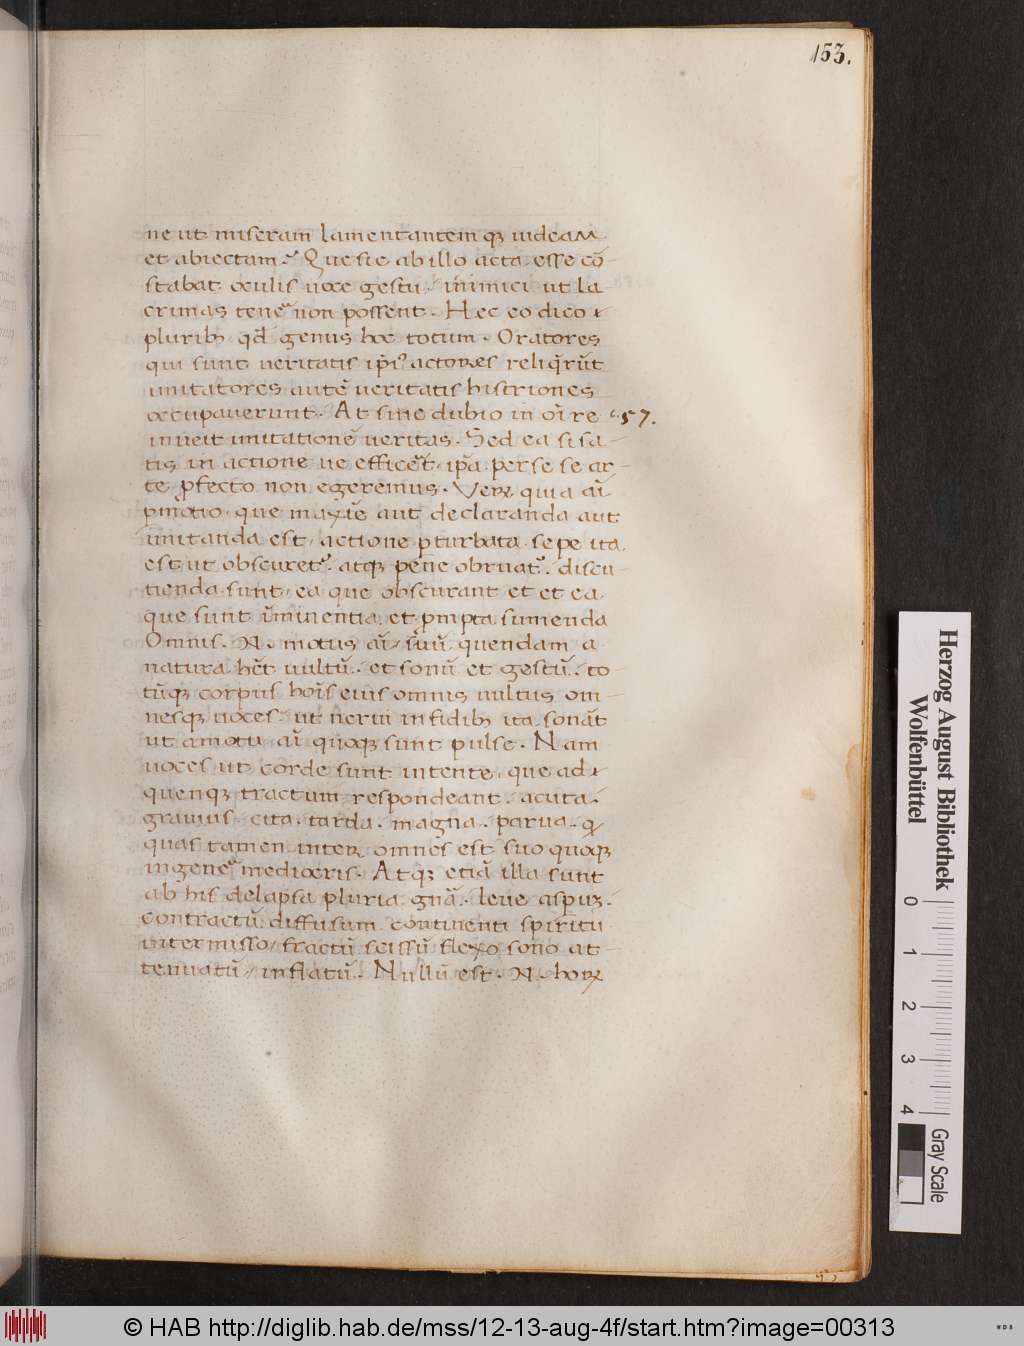 153.
ne ut miseram lamentantem qꝫ uideam
et abiectam. Que sic ab illo acta esse cõ-
stabat oculis uoce gestu. inimici ut la-
crimas tenẽ non possent. Hec eo dico
plurib; qđ genus hoc totum. Oratores
qui sunt ueritatis ip̃iꝰ actores reliqr̃ũt
imitatores autẽ ueritatis histriones
occupauerunt. At sine dubio in oĩ re c. 57.
inueit imitationẽ ueritas. Sed ea si sa-
tis in actione ue efficer̃t ip̃a per se se ar-
te ꝓfecto non egeremus. Veꝝ quia aĩ
pmotio que maxiẽ aut declaranda aut
imitanda est, actione pturbata sepe ita
est ut obscuretᷣ. atqꝫ pene obruatᷣ. discu-
tienda sunt ea que obscurant et et ea
que sunt ĩminentia et pmpta sumenda
Omnis .N. motus aĩ suũ quendam a
natura hẽt uultũ. et sonũ et gestũ. to-
tũqꝫ corpus hoĩs eius omnis uultus om-
nesqꝫ uoces. ut nerui in fidib; ita sonãt
ut a motu aĩ quoqꝫ sunt pulse. Nam
uoces ut corde sunt intente, que ad
quenqꝫ tractum respondeant. acuta.
grauius. cita. tarda. magna. parua. q̃
quas tamen inteꝝ omnes est suo quoqꝫ
in genẽ mediocris. Atqꝫ etiã illa sunt
ab his delapsa pluria gñã. leue aspuꝫ.
contractũ diffusum continenti spiritu
intermisso, fractũ scissũ flexo sono at-
tenuatũ inflatũ. Nullũ est .N. hoꝝ
Herzog August Bibliothek
Wolfenbüttel
0 1 2 3 4
Gray Scale
© HAB http://diglib.hab.de/mss/12-13-aug-4f/start.htm?image=00313